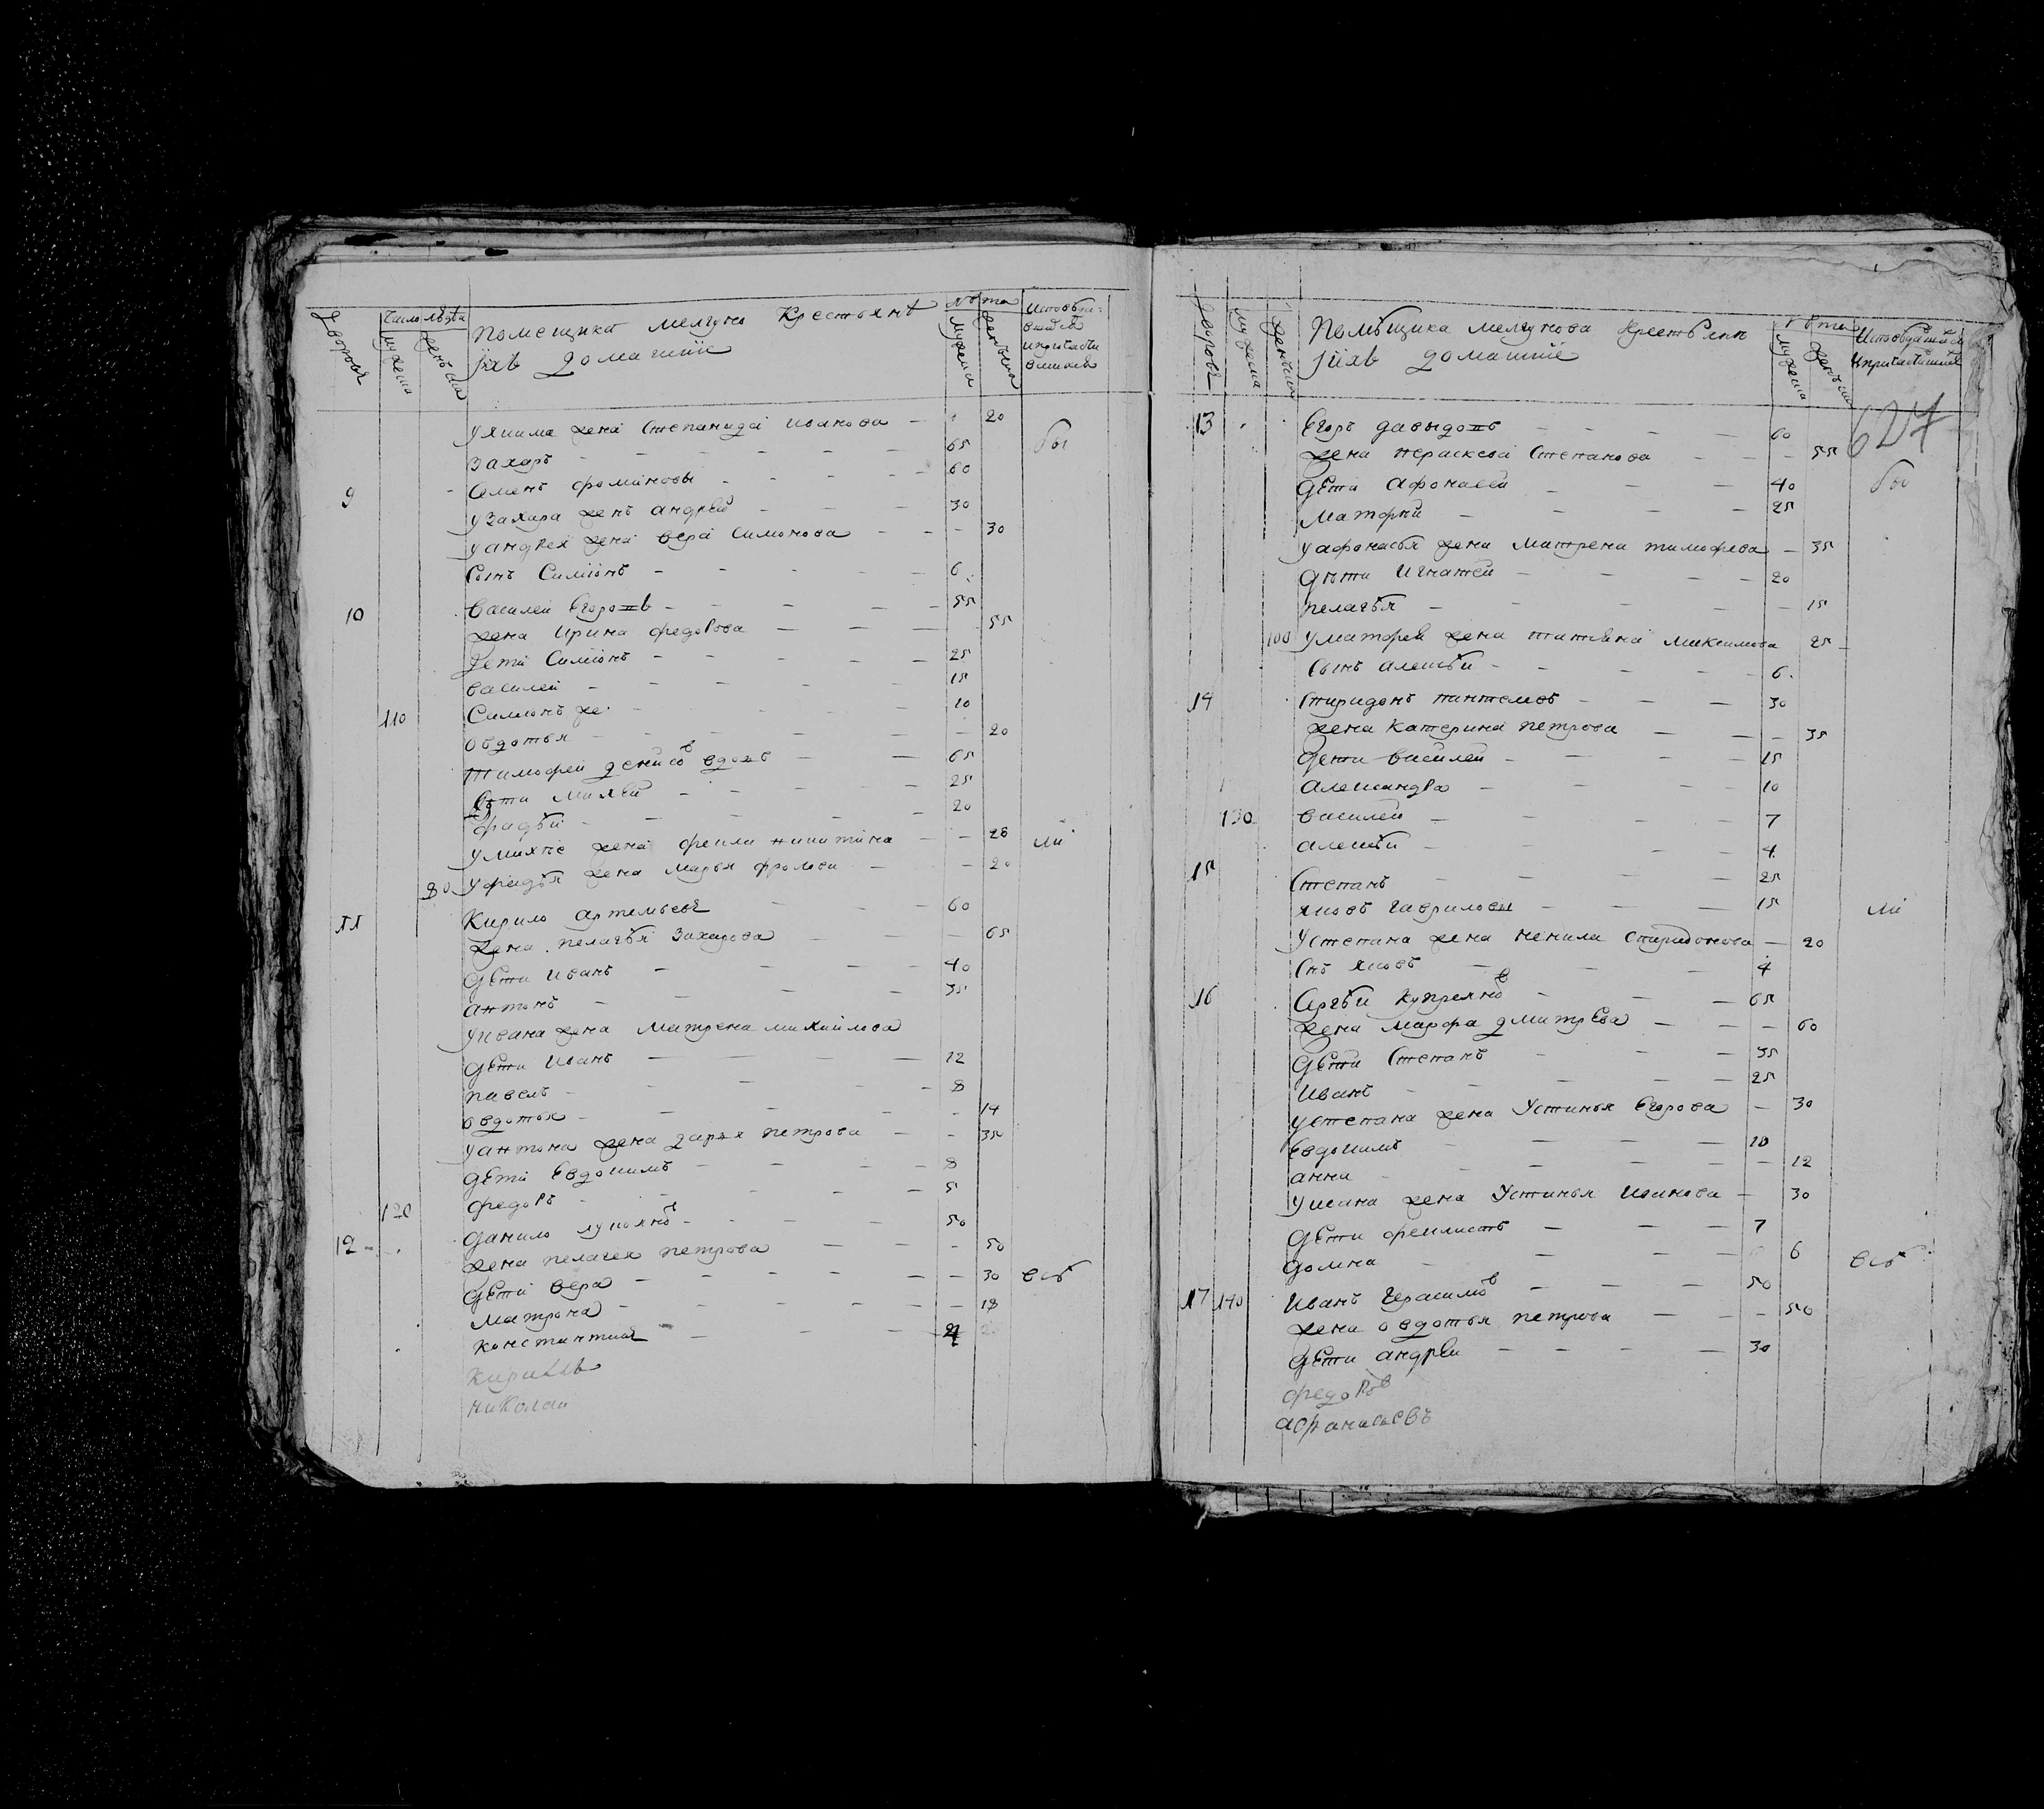 Дворовъ
Число лѣтъ
мужеска
женска
Помещика мелгуно Крестьянѣ
ихъ домашнiе
лѣта
мужеска
женска
Исповѣда-
вшiся
ипричасти
вшихся
жена Степанида иванова — 20
Захаръ — 65 бы
Семенъ фоминовы — 60
9 у Захара андрей — 30
у андрея жена вера Симонова — 30
Сынъ Симiонъ — 6
10 василей Егоровъ — 55
жена Ирина федорова — 55
дети Симiонъ — 25
василей — 15
110 Симионъ же — 10
овдотья — 20
Тимофей денисовъ вдовъ — 65
дѣти Михей — 25
фадѣй — 20
жена фекла никитина — 28 ли
80 у фадѣя жена марья фролова — 20
11 Кирило артемьевъ — 60
жена пелагѣя Захарова — 65
дѣти иванъ — 40
антонъ — 35
у ивана жена Матрена михайлова
дѣти иванъ — 12
павелъ — 8
овдотья — 14
у антона жена дарья петрова — 35
дѣти Евдокимъ — 8
120 федоръ — 5
12 данило — 50
жена пелагея петрова — 50
дѣти вера — 30 всѣ
матрона — 18
константинъ
Кирилъ
николаи
Дворовъ
мужеска
женска
Помѣщика мелгунова Крестьянъ
iихъ домашнiе
лѣта
мужеска
женска
627
13 Егоръ давыдовъ — 60
жена пераскева Степанова — 55
дѣти афонасей — 40 бы
матфей — 25
у афонасья жена матрена тимофева — 35
дѣти Игнатей — 20
пелагѣя — 15
100 у матфея жена татьяна максимова 25
Сынъ алексѣй — 6
14 Спиридонъ — 30
жена катерина петрова — 35
дѣти василей — 15
Александра — 10
130 василей — 7
алексѣй — 4
15 Степанъ — 25
яковъ гавриловы — 15 ли
у степана жена ненила спиридонова — 20
Снъ яковъ — 4
16 Сергѣй купреяновъ — 65
жена марфа дмитрева — 60
дѣти Степанъ — 35
иванъ — 25
у степана жена Устинья Егорова — 30
Евдокимъ — 10
анна — 12
у ивана жена Устинья иванова — 30
дѣти феклистъ — 7
домна — 6 всѣ
17 140 иванъ герасимовъ — 50
жена овдотья петрова — 50
дѣти андрей — 30
федоровъ
афанасьевъ